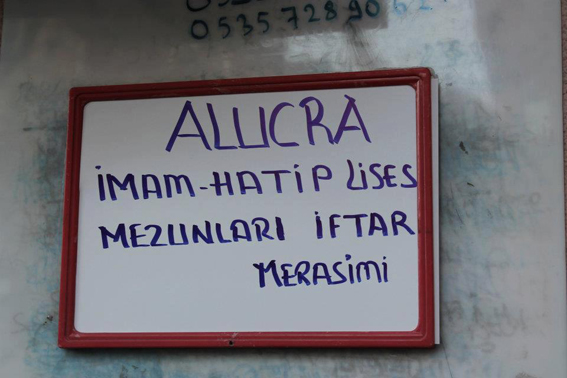 0535 728 90 62
ALUCRA
İMAM-HATİP LİSES
MEZUNLARI İFTAR
MERASİMİ